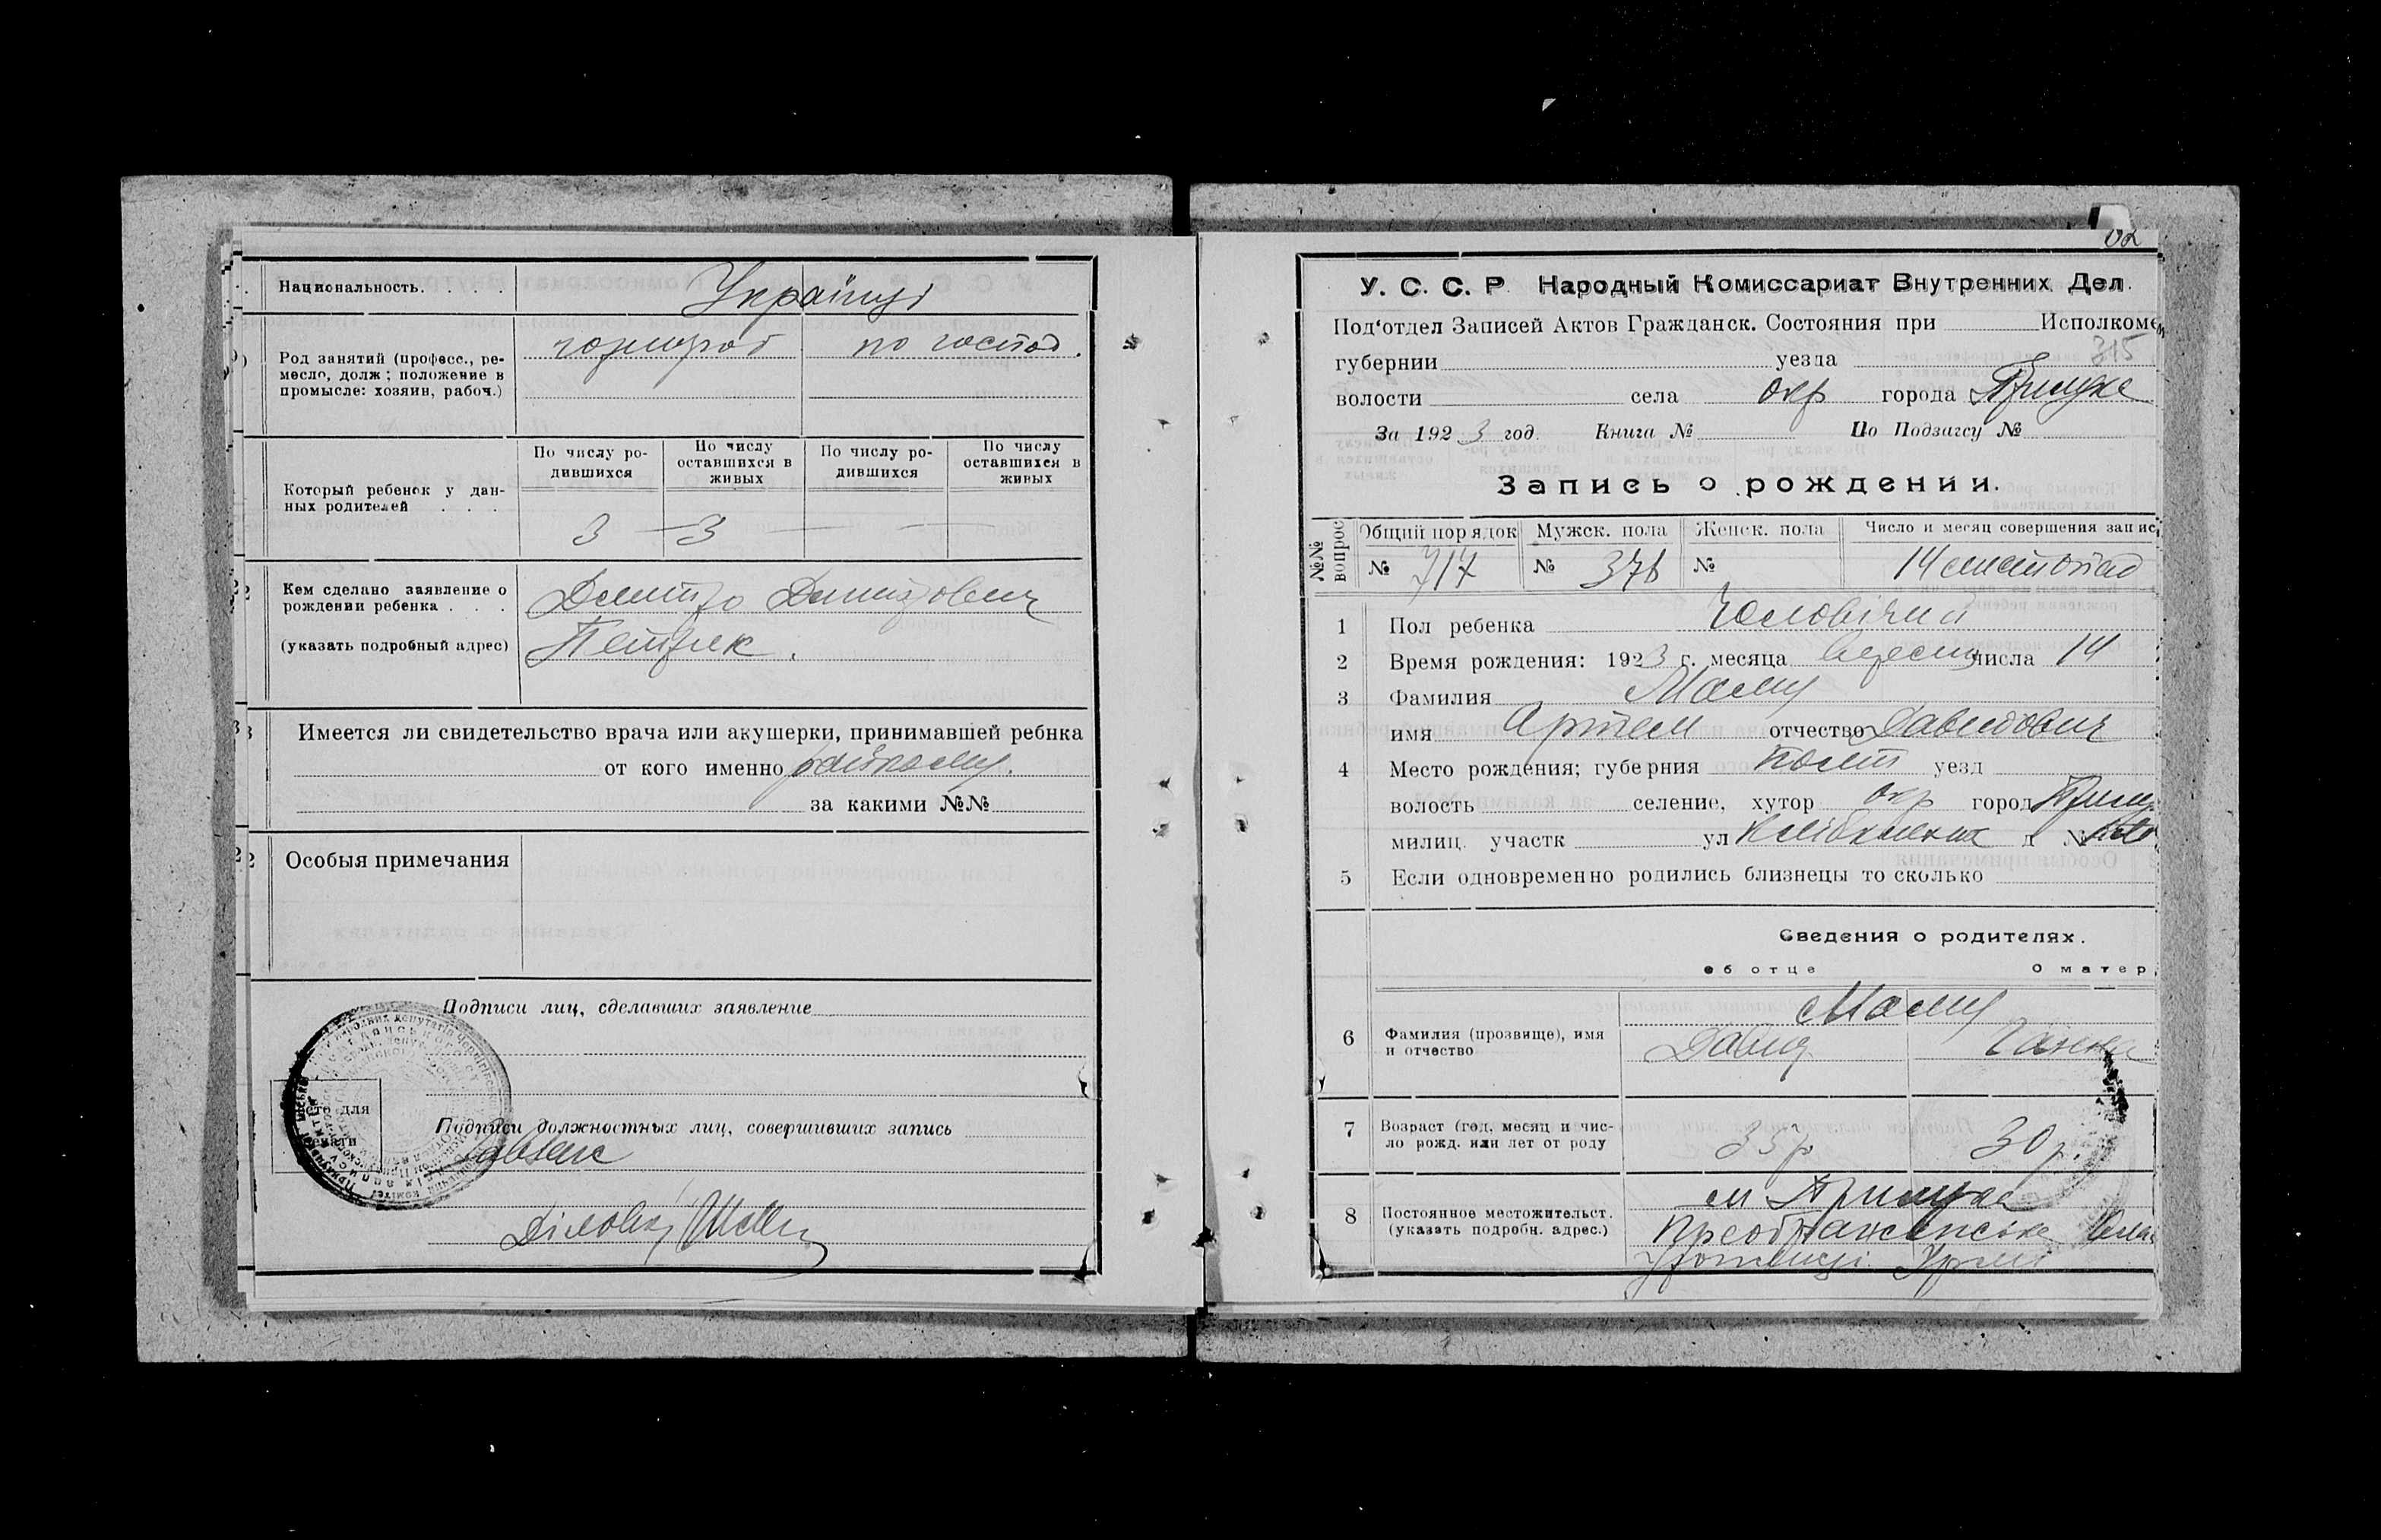 Национальность. . . . Українці
Род занятий (професс., ре-
месло, долж; положение в
промысле: хозяин, рабоч.)
по господ.
Который ребенок у дан-
ных родителей . . .
По числу ро-
дившихся
По числу
оставшихся в
живых
По числу ро-
дившихся
По числу
оставшихся в
живых
3 — 3 — —
Кем сделано заявление о
рождении ребенка . . .
(указать подробный адрес)
Дмитро
Петрик.
Имеется ли свидетельство врача или акушерки, принимавшей ребнка
от кого именно
за какими №№
Особыя примечания
Подписи лиц, сделавших заявление
Подписи должностных лиц, совершивших запись
Діловод
02
У. С. С. Р. Народный Комиссариат Внутренних Дел.
Под‘отдел Записей Актов Гражданск. Состояния при Исполкоме
315
губернии уезда
волости села окр города Прилуке
За 1923 год. Книга № По Подзагсу №
Запись о рождении.
№№ вопрос
Общий порядок Мужск. пола Женск. пола Число и месяц совершения запис
№ 717 № 376 № 14 листопад
1 Пол ребенка Чоловічий
2 Время рождения: 1923 г. месяца вересня числа 14
3 Фамилия Малиу
имя Артем отчество Давидович
4 Место рождения; губерния Полт уезд
волость селение, хутор окр город Прилу
милиц. участк ул д №
5 Если одновременно родились близнецы то сколько
Сведения о родителях.
об отце О матер
6 Фамилия (прозвище), имя
и отчество
Давид Ганна
7 Возраст (год, месяц и чис-
ло рожд. или лет от роду
35 р 30 р.
8 Постоянное местожительст.
(указать подробн. адрес.)
м Прилуке
Преображенське